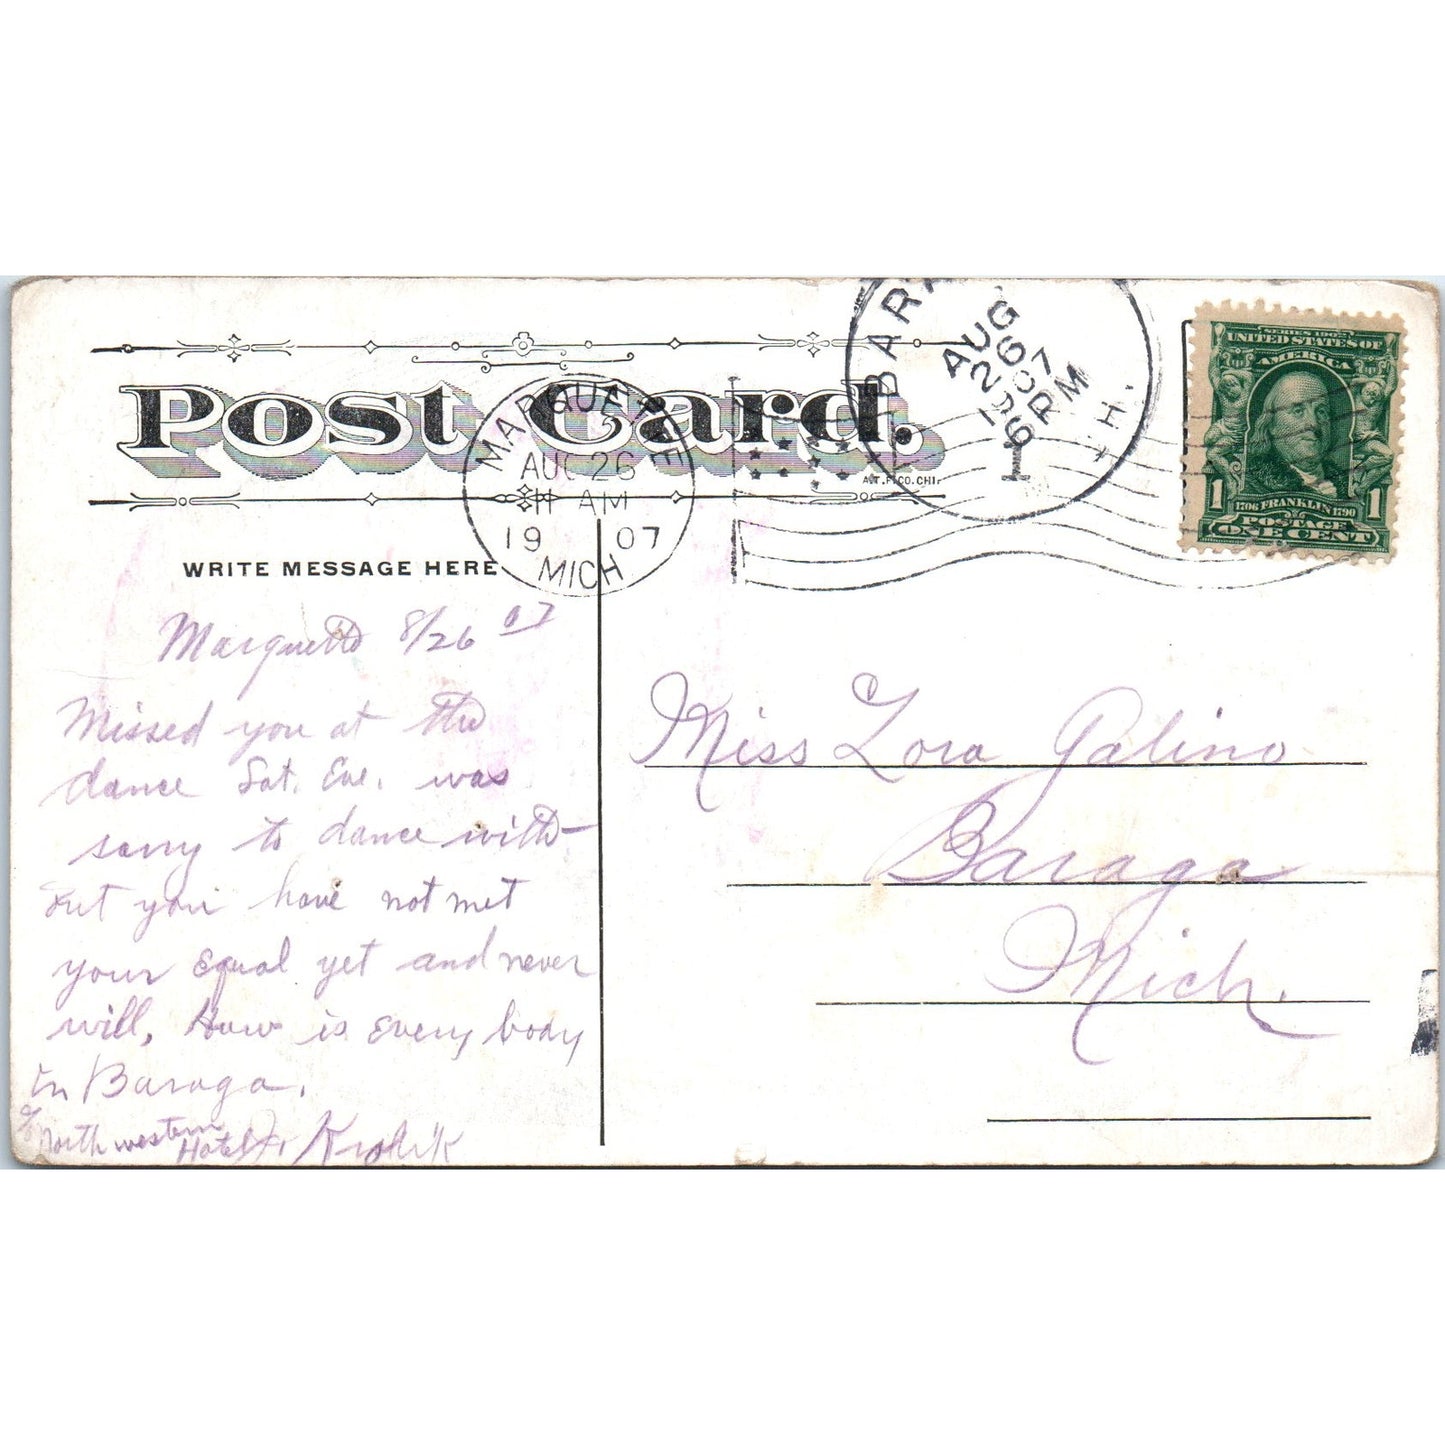 Post Card.
MARQUETTE
AUG 26
11 AM
1907
MICH.
BAR
AUG
26
1907
6 PM
1
CH.
SERIES 1902
UNITED STATES OF
AMERICA
1 1
1706 FRANKLIN 1790
POSTAGE
ONE CENT
A.T.F. CO. CHI.
WRITE MESSAGE HERE
Marquette 8/26 07
Missed you at the
dance Sat. Eve. was
sorry to dance with-
out you have not met
your Equal yet and never
will, How is Every body
in Baraga.
c/o Northwestern
Hotel
Miss Lora Galino
Baraga
Mich.